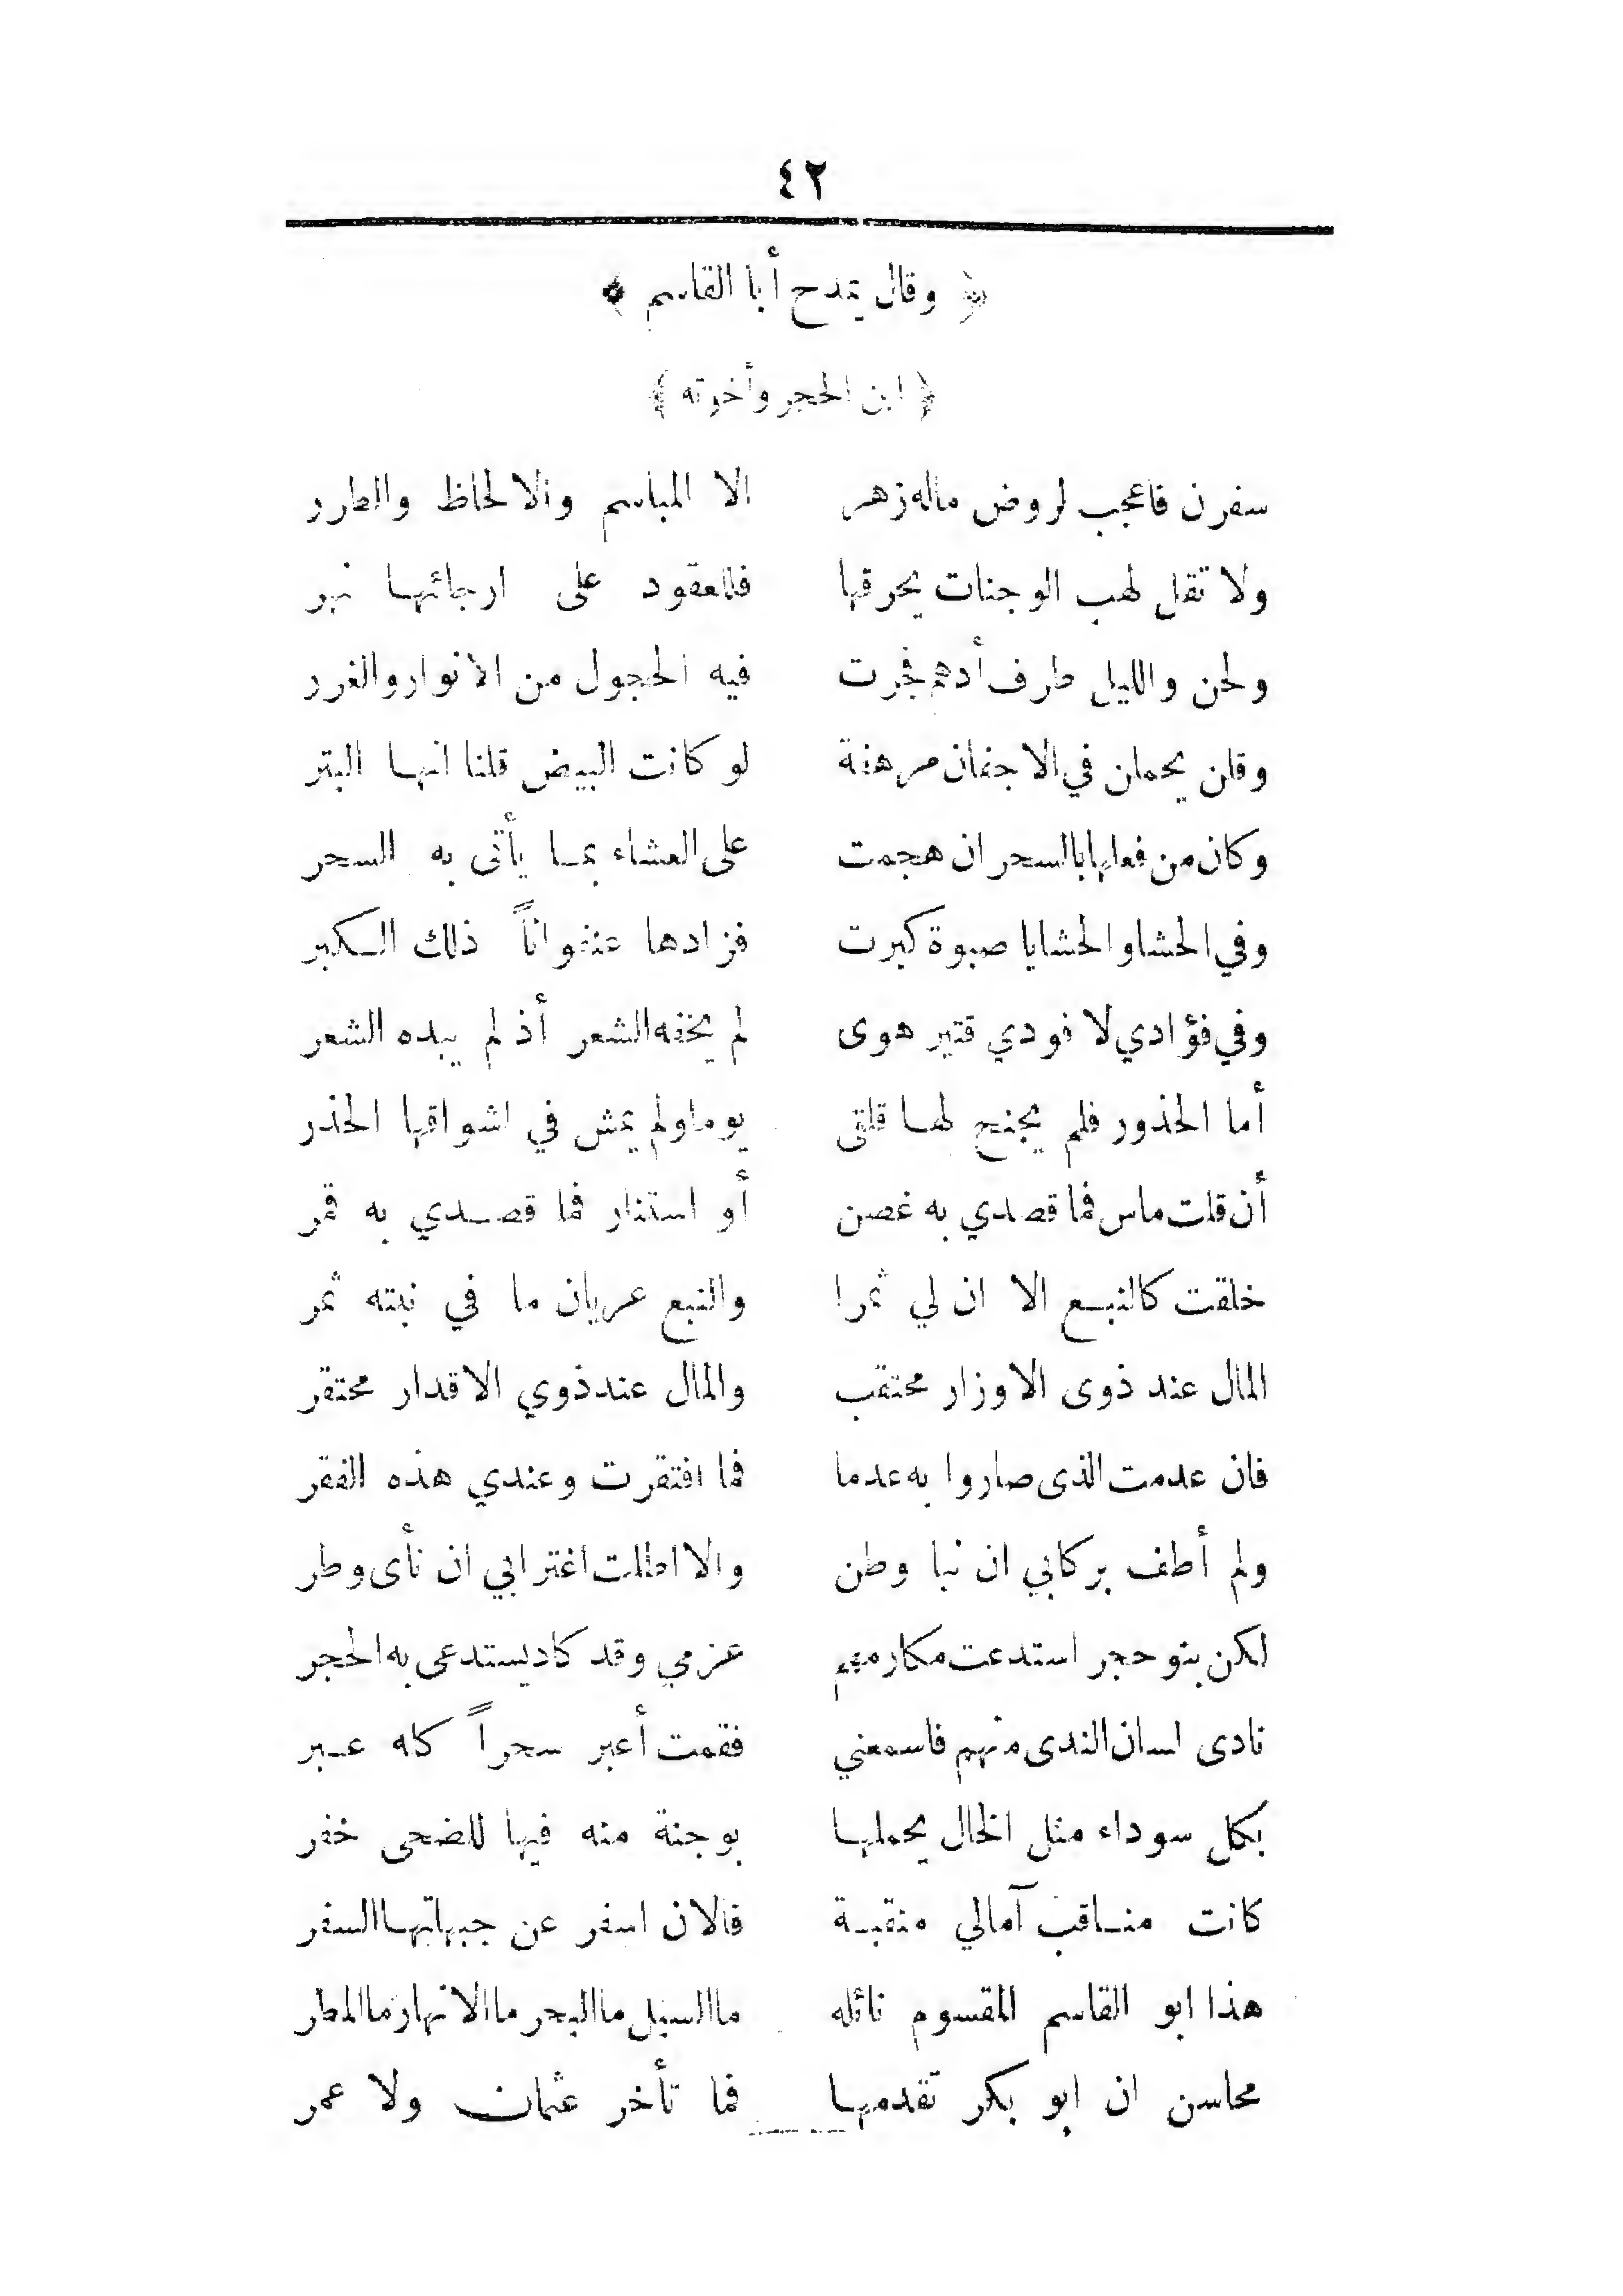 ٤٢
﴿ وقال يمدح أبا القاسم ﴾
﴿ ابن الحجر وأخوته ﴾
سفرن فاعجب لروض ماله زهر الا المباسم والالحاظ والطرر
ولا تقل لهب الوجنات يحرقها فللعقود على ارجائها نهر
ولحن والليل طرف أدهم فجرت فيه الحجول من الانوار والغرر
وقلن يحملن في الاجفان مرهفة لو كانت البيض قلنا انها البتر
وكان من فعلها بالسحر ان هجمت على العشاء بما يأتى به السحر
وفي الحشا والحشايا صبوة كبرت فزادها عنفواناً ذلك الكبر
وفي فؤادي لا فودي قتير هوى لم يخفه الشعر أذ لم يبده الشعر
أما الحذور فلم يجنح لها قلقى يوما ولم يمش في اشواقها الحذر
أن قلت ماس فما قصدي به غصن أو استنار فما قصدي به قمر
خلقت كالنبع الا ان لي ثمرا والنبع عريان ما في نبته ثمر
المال عند ذوى الاوزار محتقب والمال عند ذوي الاقدار محتقر
فان عدمت الذى صاروا به عدما فما افتقرت وعندي هذه الفقر
ولم أطف بركابي ان نبا وطن والا اطلت اغترابي ان نأى وطر
لكن بنو حجر استدعت مكارمهم عزمي وقد كاد يستدعى به الحجر
نادى لسان الندى منهم فاسمعني فقمت أعبر سحراً كله عبر
بكل سوداء مثل الخال يحملها بوجنة منه فيها للضحى خفر
كانت مناقب آمالي منقبة فالان اسفر عن جبهاتها السفر
هذا ابو القاسم المقسوم نائله ما السيل ما البحر ما الانهار ما المطر
محاسن ان ابو بكر تقدمها فما تأخر عثمان ولا عمر